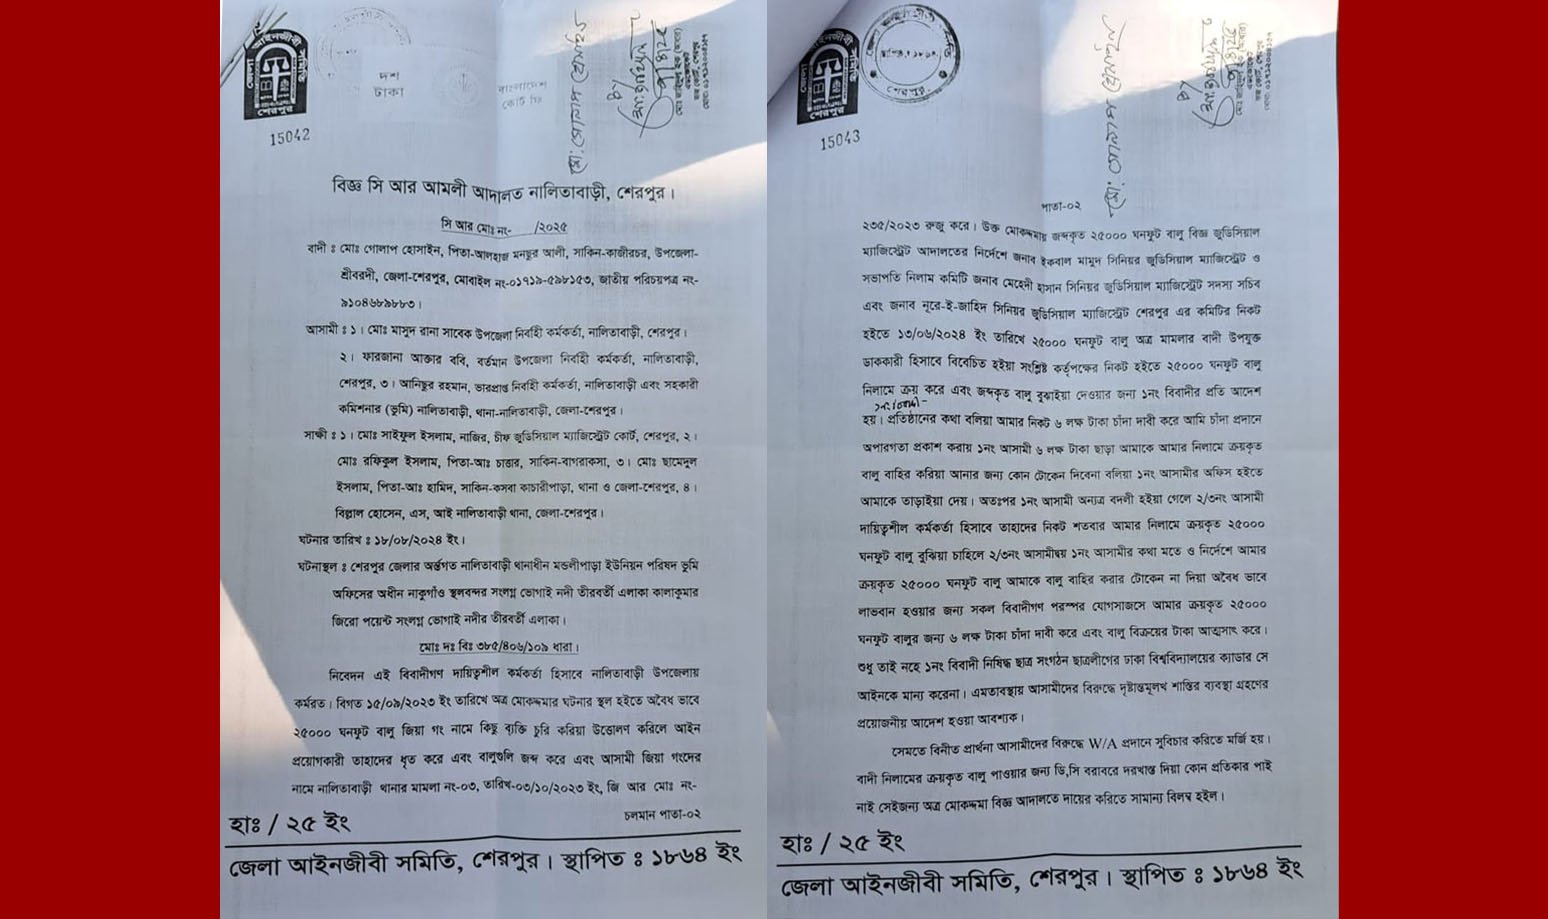 জেলা আইনজীবী সমিতি
শেরপুর
15042
দশ
টাকা
বাংলাদেশ
কোর্ট ফি
মোঃ গোলাপ হোসাইন
বিজ্ঞ সি আর আমলী আদালত নালিতাবাড়ী, শেরপুর।
সি আর মোঃ নং- /২০২৫
বাদী ঃ মোঃ গোলাপ হোসাইন, পিতা-আলহাজ মনছুর আলী, সাকিন-কাজীরচর, উপজেলা-
শ্রীবরদী, জেলা-শেরপুর, মোবাইল নং-০১৭১৯-৫৯৮১৫৩, জাতীয় পরিচয়পত্র নং-
৯১০৪৬৮৯৮৮৩।
আসামী ঃ ১। মোঃ মাসুদ রানা সাবেক উপজেলা নির্বহী কর্মকর্তা, নালিতাবাড়ী, শেরপুর।
২। ফারজানা আক্তার ববি, বর্তমান উপজেলা নির্বহী কর্মকর্তা, নালিতাবাড়ী,
শেরপুর, ৩। আনিছুর রহমান, ভারপ্রাপ্ত নির্বহী কর্মকর্তা, নালিতাবাড়ী এবং সহকারী
কমিশনার (ভূমি) নালিতাবাড়ী, থানা-নালিতাবাড়ী, জেলা-শেরপুর।
সাক্ষী ঃ ১। মোঃ সাইফুল ইসলাম, নাজির, চীফ জুডিসিয়াল ম্যাজিস্ট্রেট কোর্ট, শেরপুর, ২।
মোঃ রফিকুল ইসলাম, পিতা-আঃ চাত্তার, সাকিন-বাগরাকসা, ৩। মোঃ ছামেদুল
ইসলাম, পিতা-আঃ হামিদ, সাকিন-কসবা কাচারীপাড়া, থানা ও জেলা-শেরপুর, ৪।
বিল্লাল হোসেন, এস, আই নালিতাবাড়ী থানা, জেলা-শেরপুর।
ঘটনার তারিখ ঃ ১৮/০৮/২০২৪ ইং।
ঘটনাস্থল ঃ শেরপুর জেলার অর্ন্তগত নালিতাবাড়ী থানাধীন মন্ডলীপাড়া ইউনিয়ন পরিষদ ভুমি
অফিসের অধীন নাকুগাঁও স্থলবন্দর সংলগ্ন ভোগাই নদী তীরবর্তী এলাকা কালাকুমার
জিরো পয়েন্ট সংলগ্ন ভোগাই নদীর তীরবর্তী এলাকা।
মোঃ দঃ বিঃ ৩৮৫/৪০৬/১০৯ ধারা।
নিবেদন এই বিবাদীগণ দায়িত্বশীল কর্মকর্তা হিসাবে নালিতাবাড়ী উপজেলায়
কর্মরত। বিগত ১৫/০৯/২০২৩ ইং তারিখে অত্র মোকদ্দমার ঘটনার স্থল হইতে অবৈধ ভাবে
২৫০০০ ঘনফুট বালু জিয়া গং নামে কিছু ব্যক্তি চুরি করিয়া উত্তোলণ করিলে আইন
প্রয়োগকারী তাহাদের ধৃত করে এবং বালুগুলি জব্দ করে এবং আসামী জিয়া গংদের
নামে নালিতাবাড়ী থানার মামলা নং-০৩, তারিখ-০৩/১০/২০২৩ ইং, জি আর মোঃ নং-
চলমান পাতা-০২
হাঃ / ২৫ ইং
জেলা আইনজীবী সমিতি, শেরপুর। স্থাপিত ঃ ১৮৬৪ ইং
জেলা আইনজীবী সমিতি
শেরপুর
15043
শেরপুর
মোঃ গোলাপ হোসাইন
পাতা-০২
২৩৫/২০২৩ রুজু করে। উক্ত মোকদ্দমায় জব্দকৃত ২৫০০০ ঘনফুট বালু বিজ্ঞ জুডিসিয়াল
ম্যাজিস্ট্রেট আদালতের নির্দেশে জনাব ইকবাল মামুদ সিনিয়র জুডিসিয়াল ম্যাজিস্ট্রেট ও
সভাপতি নিলাম কমিটি জনাব মেহেদী হাসান সিনিয়র জুডিসিয়াল ম্যাজিস্ট্রেট সদস্য সচিব
এবং জনাব নূরে-ই-জাহিদ সিনিয়র জুডিসিয়াল ম্যাজিস্ট্রেট শেরপুর এর কমিটির নিকট
হইতে ১৩/০৬/২০২৪ ইং তারিখে ২৫০০০ ঘনফুট বালু অত্র মামলার বাদী উপযুক্ত
ডাককারী হিসাবে বিবেচিত হইয়া সংশ্লিষ্ট কর্তৃপক্ষের নিকট হইতে ২৫০০০ ঘনফুট বালু
নিলামে ক্রয় করে এবং জব্দকৃত বালু বুঝাইয়া দেওয়ার জন্য ১নং বিবাদীর প্রতি আদেশ
হয়। প্রতিষ্ঠানের কথা বলিয়া আমার নিকট ৬ লক্ষ টাকা চাঁদা দাবী করে আমি চাঁদা প্রদানে
অপারগতা প্রকাশ করায় ১নং আসামী ৬ লক্ষ টাকা ছাড়া আমাকে আমার নিলামে ক্রয়কৃত
বালু বাহির করিয়া আনার জন্য কোন টোকেন দিবেনা বলিয়া ১নং আসামীর অফিস হইতে
আমাকে তাড়াইয়া দেয়। অতঃপর ১নং আসামী অন্যত্র বদলী হইয়া গেলে ২/৩নং আসামী
দায়িত্বশীল কর্মকর্তা হিসাবে তাহাদের নিকট শতবার আমার নিলামে ক্রয়কৃত ২৫০০০
ঘনফুট বালু বুঝিয়া চাহিলে ২/৩নং আসামীদ্বয় ১নং আসামীর কথা মতে ও নির্দেশে আমার
ক্রয়কৃত ২৫০০০ ঘনফুট বালু আমাকে বালু বাহির করার টোকেন না দিয়া অবৈধ ভাবে
লাভবান হওয়ার জন্য সকল বিবাদীগণ পরস্পর যোগসাজসে আমার ক্রয়কৃত ২৫০০০
ঘনফুট বালুর জন্য ৬ লক্ষ টাকা চাঁদা দাবী করে এবং বালু বিক্রয়ের টাকা আত্মসাৎ করে।
শুধু তাই নহে ১নং বিবাদী নিষিদ্ধ ছাত্র সংগঠন ছাত্রলীগের ঢাকা বিশ্ববিদ্যালয়ের ক্যাডার সে
আইনকে মান্য করেনা। এমতাবস্থায় আসামীদের বিরুদ্ধে দৃষ্টান্তমূলখ শাস্তির ব্যবস্থা গ্রহণের
প্রয়োজনীয় আদেশ হওয়া আবশ্যক।
সেমতে বিনীত প্রার্থনা আসামীদের বিরুদ্ধে W/A প্রদানে সুবিচার করিতে মর্জি হয়।
বাদী নিলামের ক্রয়কৃত বালু পাওয়ার জন্য ডি,সি বরাবরে দরখাস্ত দিয়া কোন প্রতিকার পাই
নাই সেইজন্য অত্র মোকদ্দমা বিজ্ঞ আদালতে দায়ের করিতে সামান্য বিলম্ব হইল।
হাঃ / ২৫ ইং
জেলা আইনজীবী সমিতি, শেরপুর। স্থাপিত ঃ ১৮৬৪ ইং